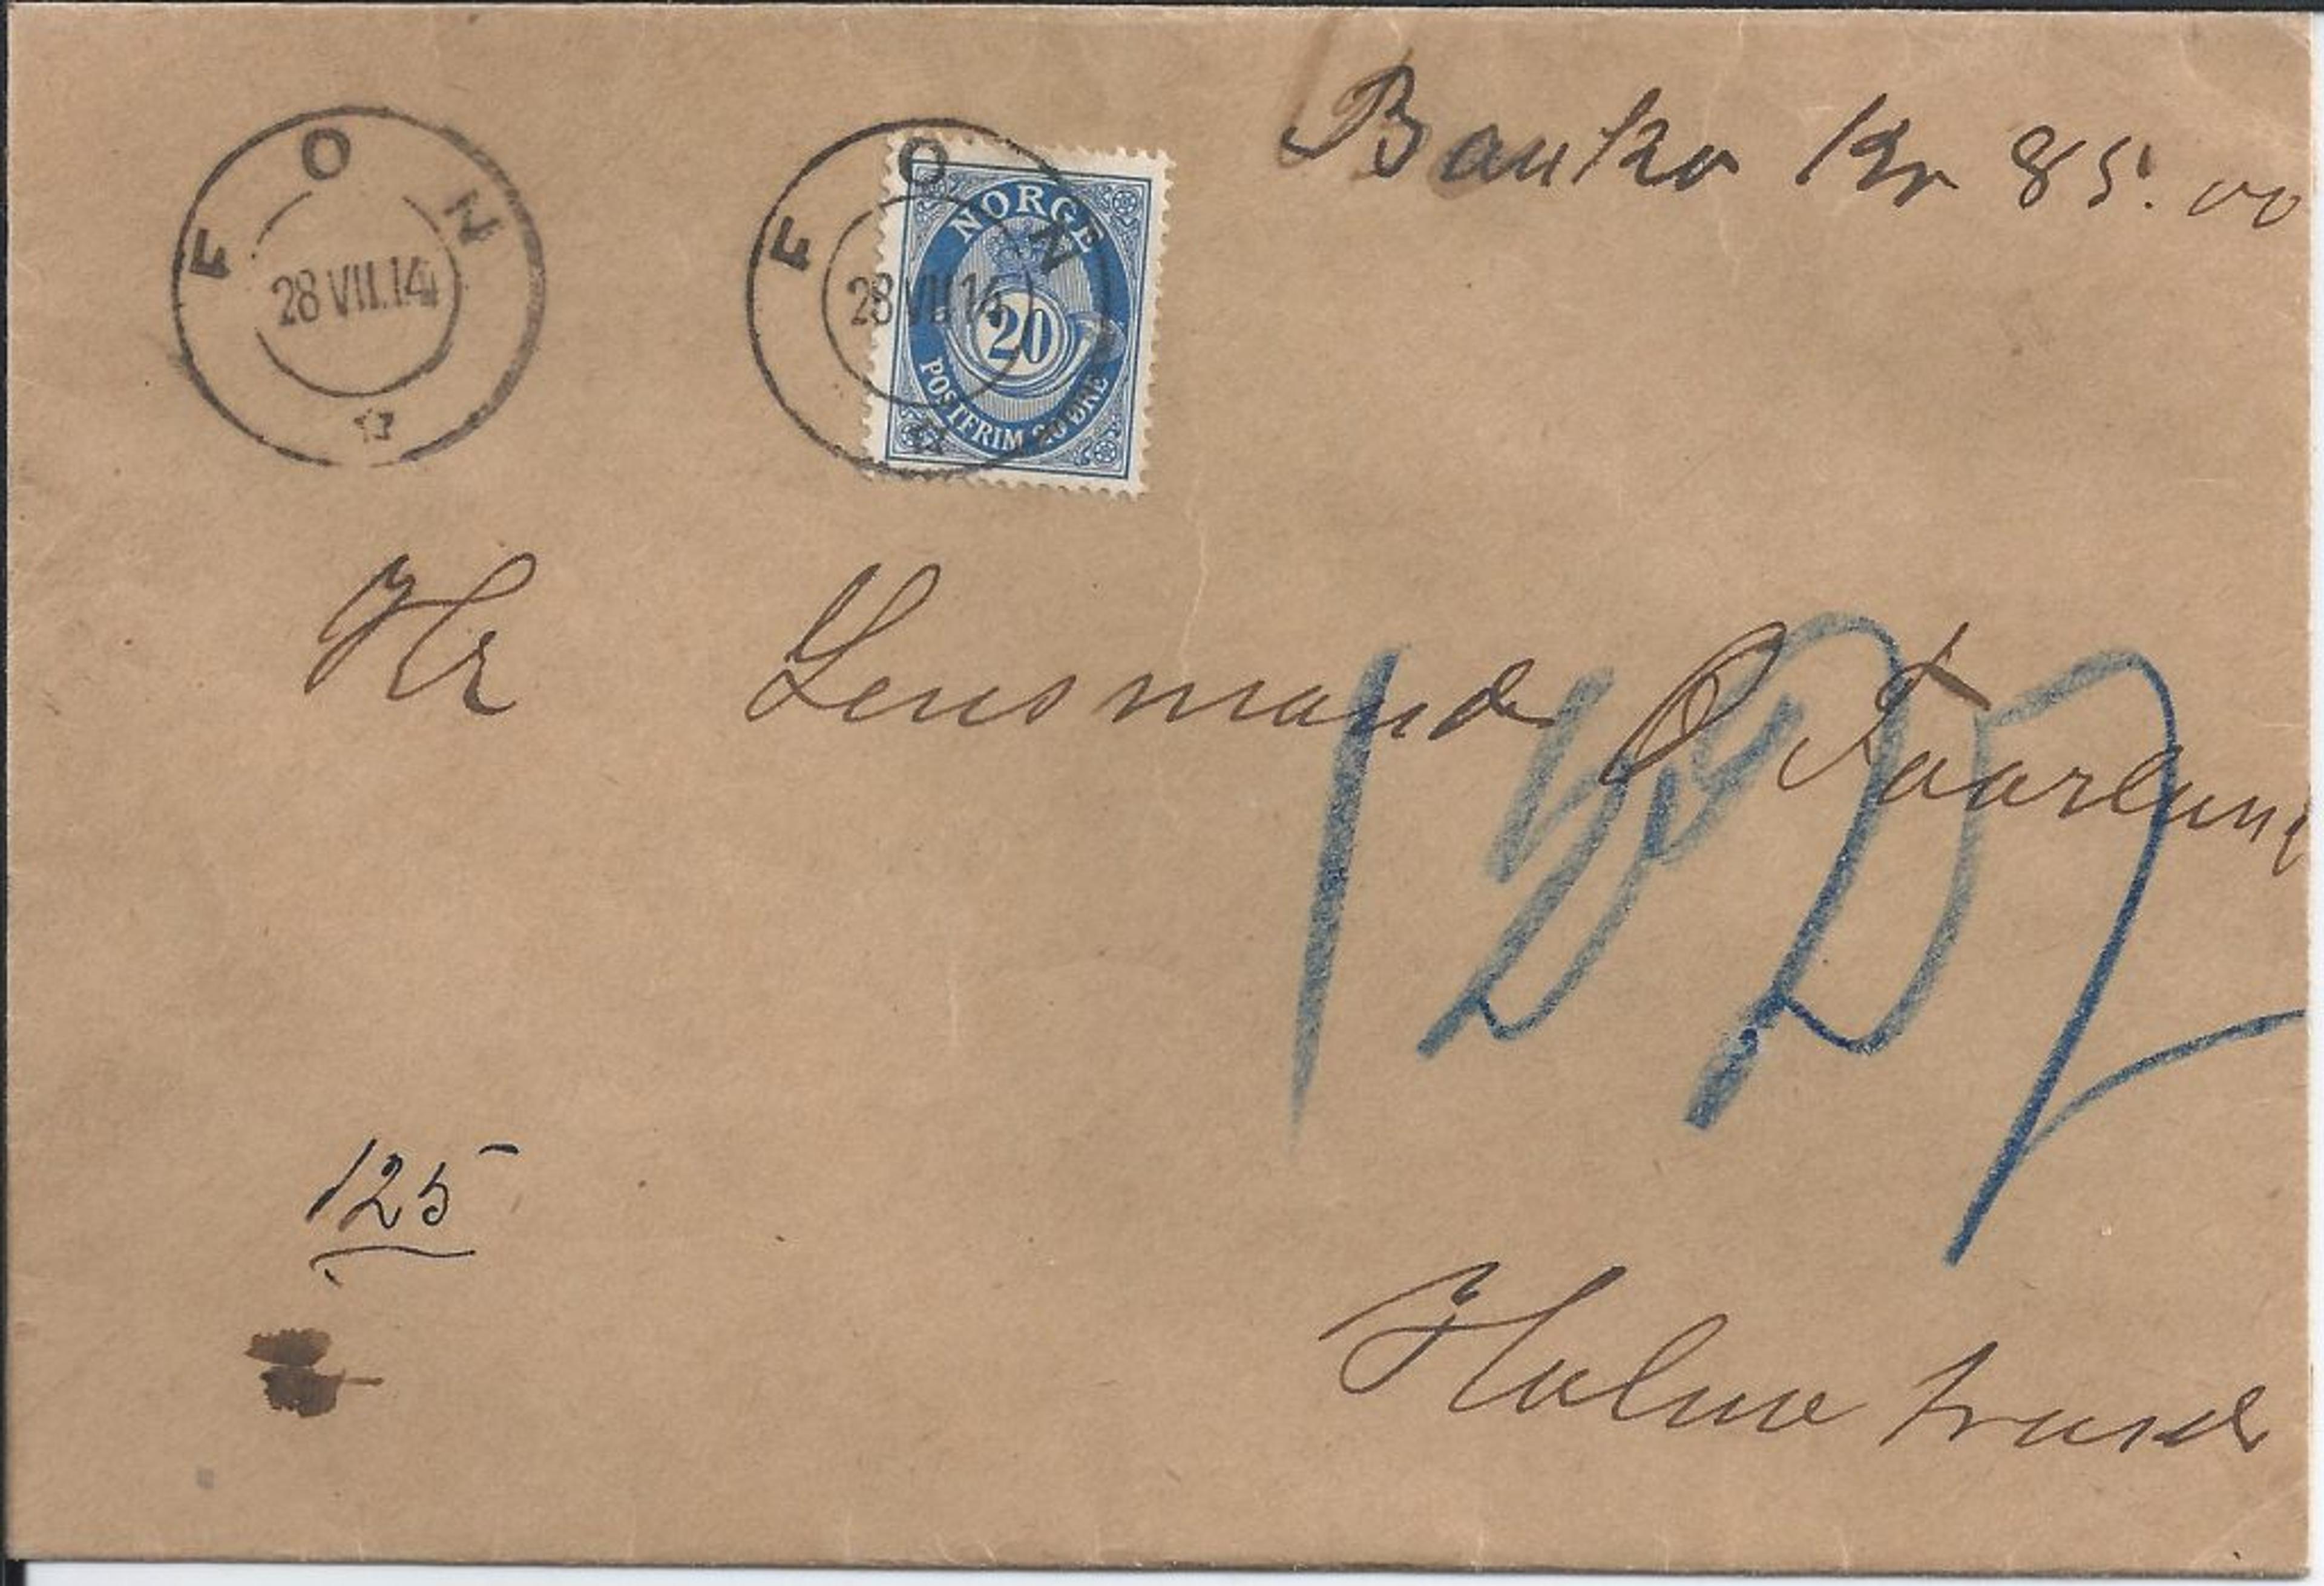 FON
28 VII.14
FON
28 VII 14
NORGE
20
POSTFRIM 20 ØRE
Banko Kr 85.00
Hr Lensmand O Faarlund
125
Holmestrand